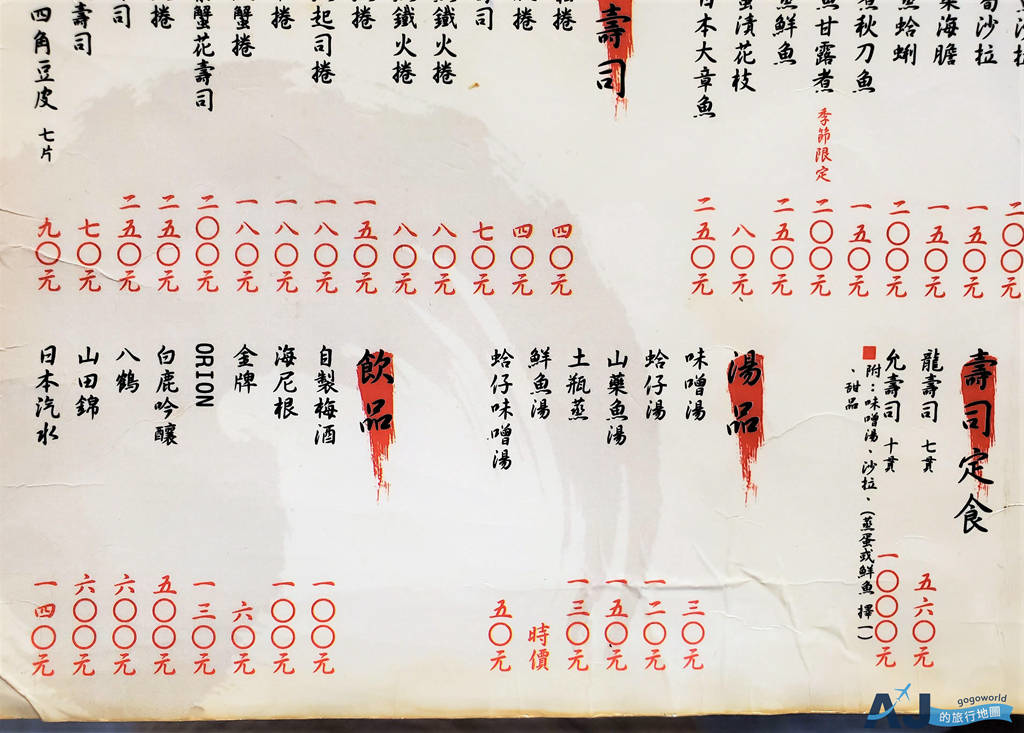 沙拉
二〇〇元
沙拉
一五〇元
海膽
一五〇元
蛤蜊
二〇〇元
秋刀魚
一五〇元
甘露煮 季節限定
二〇〇元
鮮魚
二五〇元
漬花枝
八〇元
日本大章魚
二五〇元
壽司
捲
四〇元
捲
四〇元
司
七〇元
鐵火捲
八〇元
鐵火捲
八〇元
捲
一五〇元
起司捲
一八〇元
捲
一八〇元
蟹捲
一八〇元
蟹花壽司
二〇〇元
捲
二五〇元
司
二五〇元
壽司
七〇元
四角豆皮 七片
九〇元
壽司定食
龍壽司 七貫
五六〇元
允壽司 十貫
一〇〇〇元
附：味噌湯、沙拉、(蒸蛋或鮮魚 擇一)
、甜品
湯品
味噌湯
三〇元
蛤仔湯
一二〇元
山藥魚湯
一五〇元
土瓶蒸
一三〇元
鮮魚湯
時價
蛤仔味噌湯
五〇元
飲品
自製梅酒
一〇〇元
海尼根
一〇〇元
金牌
六〇元
ORION
一三〇元
白鹿吟釀
五〇〇元
八鶴
六〇〇元
山田錦
六〇〇元
日本汽水
一四〇元
AJ
gogoworld
的旅行地圖